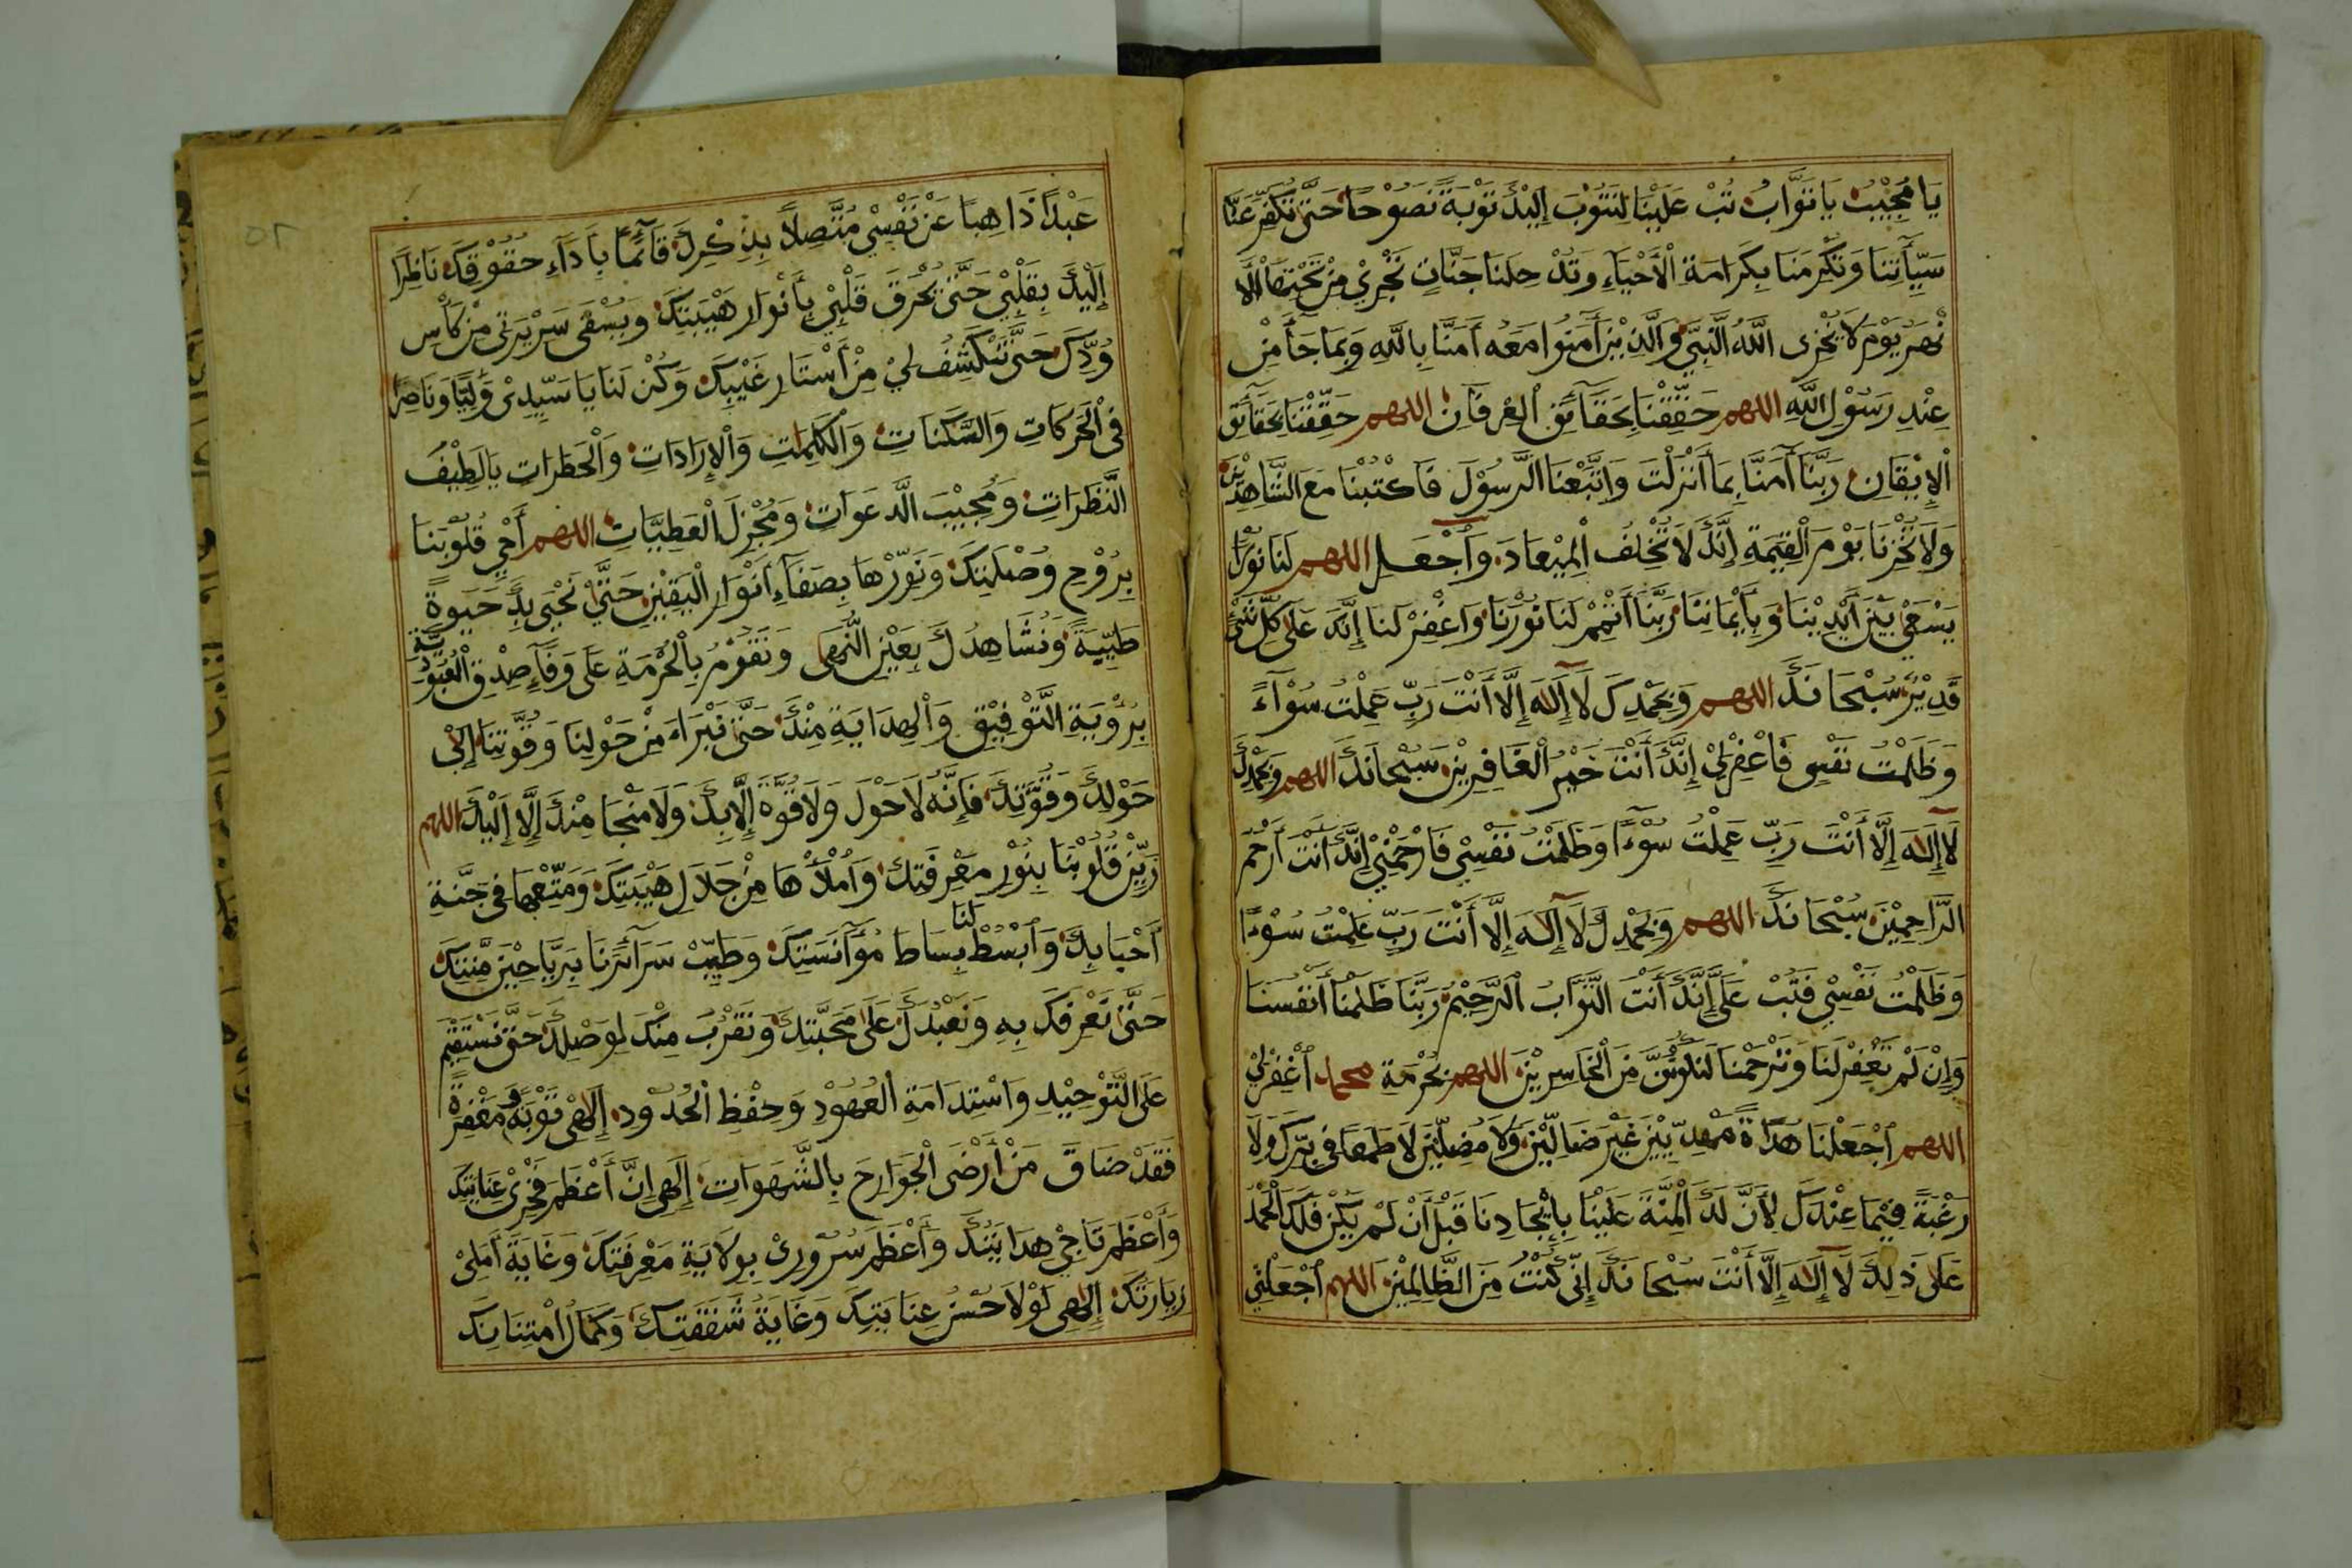 يَا مُجِيْبُ يَا تَوَّابُ تُبْ عَلَيْنَا لِنَتُوْبَ إِلَيْكَ تَوْبَةً نَصُوْحًا حَتَّى تُكَفِّرَ عَنَّا
سَيِّأٰتِنَا وَتُكْرِمَنَا بِكَرَامَةِ الْأَحْيَاءِ وَتُدْخِلَنَا جَنَّاتٍ تَجْرِيْ مِنْ تَحْتِهَا الْأَ
نْهٰرُ يَوْمَ لَا يُخْزِى اللّٰهُ النَّبِيَّ وَالَّذِيْنَ أٰمَنُوْا مَعَهُ أٰمَنَّا بِاللّٰهِ وَبِمَا جَآءَ مِنْ
عِنْدِ رَسُوْلِ اللّٰهِ اللهم حَقِّقْنَا بِحَقَآئِقِ الْعِرْفَانِ اللهم حَقِّقْنَا بِحَقَآئِقِ
الْإِيْقَانِ رَبَّنَآ أٰمَنَّا بِمَآ أَنْزَلْتَ وَاتَّبَعْنَا الرَّسُوْلَ فَاكْتُبْنَا مَعَ الشَّاهِدِيْنَ
وَلَا تُخْزِنَا يَوْمَ الْقِيٰمَةِ إِنَّكَ لَا تُخْلِفُ الْمِيْعَادَ وَاجْعَلِ اللهم لَنَا نُوْرًا
يَسْعَى بَيْنَ أَيْدِيْنَا وَبِأَيْمَانِنَا رَبَّنَا أَتْمِمْ لَنَا نُوْرَنَا وَاغْفِرْ لَنَا إِنَّكَ عَلٰى كُلِّ شَئٍ
قَدِيْرٌ سُبْحَانَكَ اللهم وَبِحَمْدِكَ لَآ إِلٰهَ إِلَّا أَنْتَ رَبِّ عَمِلْتُ سُوْآءً
وَظَلَمْتُ نَفْسِى فَاغْفِرْلِيْ إِنَّكَ أَنْتَ خَيْرُ الْغَافِرِيْنَ سُبْحَانَكَ اللهم وَبِحَمْدِكَ
لَآ إِلٰهَ إِلَّا أَنْتَ رَبِّ عَمِلْتُ سُوْءًا وَظَلَمْتُ نَفْسِيْ فَارْحَمْنِيْ إِنَّكَ أَنْتَ أَرْحَمُ
الرَّاحِمِيْنَ سُبْحَانَكَ اللهم وَبِحَمْدِكَ لَآ إِلٰهَ إِلَّا أَنْتَ رَبِّ عَمِلْتُ سُوْءًا
وَظَلَمْتُ نَفْسِيْ فَتُبْ عَلَيَّ إِنَّكَ أَنْتَ التَّوَّابُ الرَّحِيْمُ رَبَّنَا ظَلَمْنَا أَنْفُسَنَا
وَإِنْ لَمْ تَغْفِرْ لَنَا وَتَرْحَمْنَا لَنَكُوْنَنَّ مِنَ الْخَاسِرِيْنَ اللهم بِحُرْمَةِ محمد اغْفِرْلِيْ
اللهم اجْعَلْنَا هُدَاةً مَهْدِيِّيْنَ غَيْرَ ضَالِّيْنَ وَلَا مُضِلِّيْنَ لَا طَمَعًا فِى بِرِّكَ وَلَا
رَغْبَةً فِيْمَا عِنْدَكَ لِأَنَّ لَكَ الْمِنَّةَ عَلَيْنَا بِإِيْجَادِنَا قَبْلَ أَنْ لَمْ نَكُنْ فَلَكَ الْحَمْدُ
عَلٰى ذٰلِكَ لَآ إِلٰهَ إِلَّا أَنْتَ سُبْحَانَكَ إِنِّي كُنْتُ مِنَ الظَّالِمِيْنَ اللهم اجْعَلْنِي
٥٢
عَبْدًا ذَاهِبًا عَنْ نَفْسِيْ مُتَّصِلًا بِذِكْرِكَ قَآئِمًا بِأَدَآءِ حُقُوْقِكَ نَاظِرًا
إِلَيْكَ بِقَلْبِيْ حَتَّى تُحْرَقَ قَلْبِيْ بِأَنْوَارِ هَيْبَتِكَ وَيُسْقَى سَرِيْرَتِى مِنْ كَأْسِ
وُدِّكَ حَتَّى تَنْكَشِفُ لِيْ مِنْ أَسْتَارِ غَيْبِكَ وَكُنْ لَنَا يَا سَيِّدِىْ وَلِيًّا وَنَاصِرًا
فِى الْحَرَكَاتِ وَالسَّكَنَاتِ وَالْكَلِمٰتِ وَالْإِرَادَاتِ وَالْخَطَرَاتِ يَا لَطِيْفَ
النَّظَرَاتِ وَمُجِيْبَ الدَّعَوَاتِ وَمُجْزِلَ الْعَطِيَّاتِ اللهم أَحْيِ قُلُوْبَنَا
بِرُوْحِ وُصْلَتِكَ وَنَوِّرْهَا بِصَفَآءِ أَنْوَارِ الْيَقِيْنِ حَتَّى نَحْيَى بِكَ حَيٰوةً
طَيِّبَةً وَنُشَاهِدُكَ بِعَيْنِ النُّهٰى وَنَقُوْمُ بِالْحُرْمَةِ عَلَى وَفَآءِ صِدْقِ الْعُبُوْدِيَّةِ
بِرُؤْيَةِ التَّوْفِيْقِ وَالْهِدَايَةِ مِنْكَ حَتَّى نَبْرَاءَ مِنْ حَوْلِنَا وَقُوَّتِنَا إِلٰى
حَوْلِكَ وَقُوَّتِكَ فَإِنَّهُ لَا حَوْلَ وَلَا قُوَّةَ إِلَّا بِكَ وَلَا مَنْجَا مِنْكَ إِلَّا إِلَيْكَ اللهم
زَيِّنْ قُلُوْبَنَا بِنُوْرِ مَعْرِفَتِكَ وَامْلَأْهَا مِنْ جَلَالِ هَيْبَتِكَ وَمَتِّعْهَا فِى جَنَّةِ
أَحْبَابِكَ وَابْسُطْ لَنَا بِسَاطَ مُوَآنَسَتِكَ وَطَيِّبْ سَرَآئِرَنَا بِرَيَاحِيْنِ مِنَنِكَ
حَتَّى نَعْرِفَكَ بِهِ وَنَعْبُدَكَ عَلَى مَحَبَّتِكَ وَنَقْرُبَ مِنْكَ لِوَصْلِكَ حَتَّى نَسْتَقِيْمَ
عَلَى التَّوْحِيْدِ وَاسْتِدَامَةِ الْعُهُوْدِ وَحِفْظِ الْحُدُوْدِ إِلٰهِى تَوْبَةً وَمَغْفِرَةً
فَقَدْ ضَاقَ مَنْ أَرْضَى الْجَوَارِحَ بِالشَّهَوَاتِ إِلٰهِى إِنَّ أَعْظَمَ فَخْرِىْ عِنَايَتُكَ
وَأَعْظَمَ تَاجِيْ هِدَايَتُكَ وَأَعْظَمَ سُرُوْرِىْ بِوِلَايَةِ مَعْرِفَتِكَ وَغَايَةَ أَمَلِىْ
زِيَارَتُكَ إِلٰهِى لَوْلَا حُسْنُ عِنَايَتِكَ وَغَايَةُ شَفَقَتِكَ وَكَمَالُ امْتِنَانِكَ